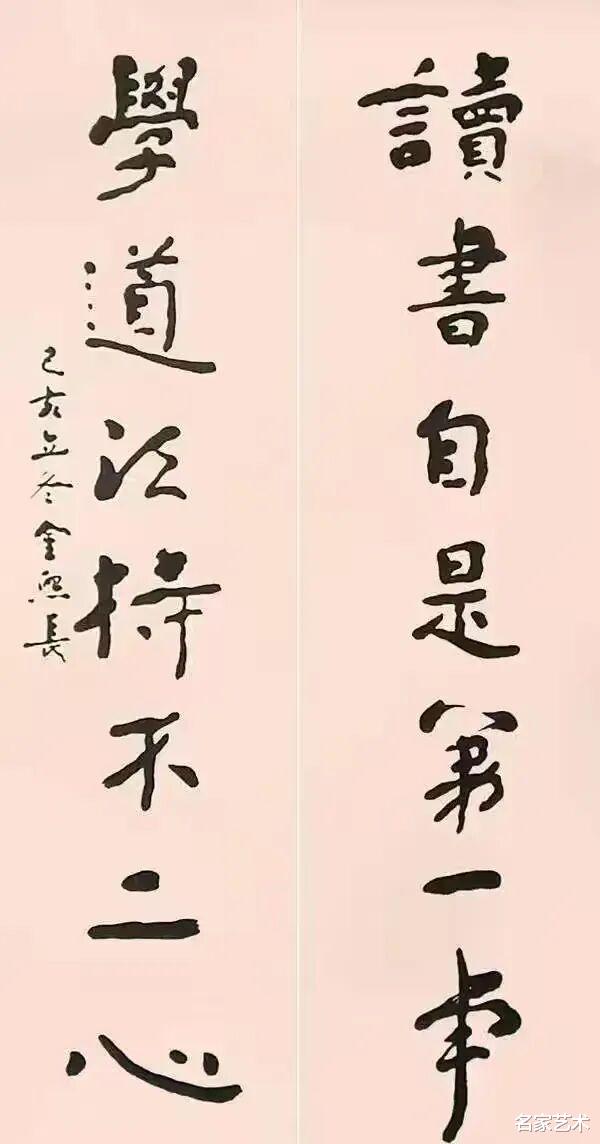 讀書自是第一事
學道須持不二心
己亥立冬金長
名家艺术